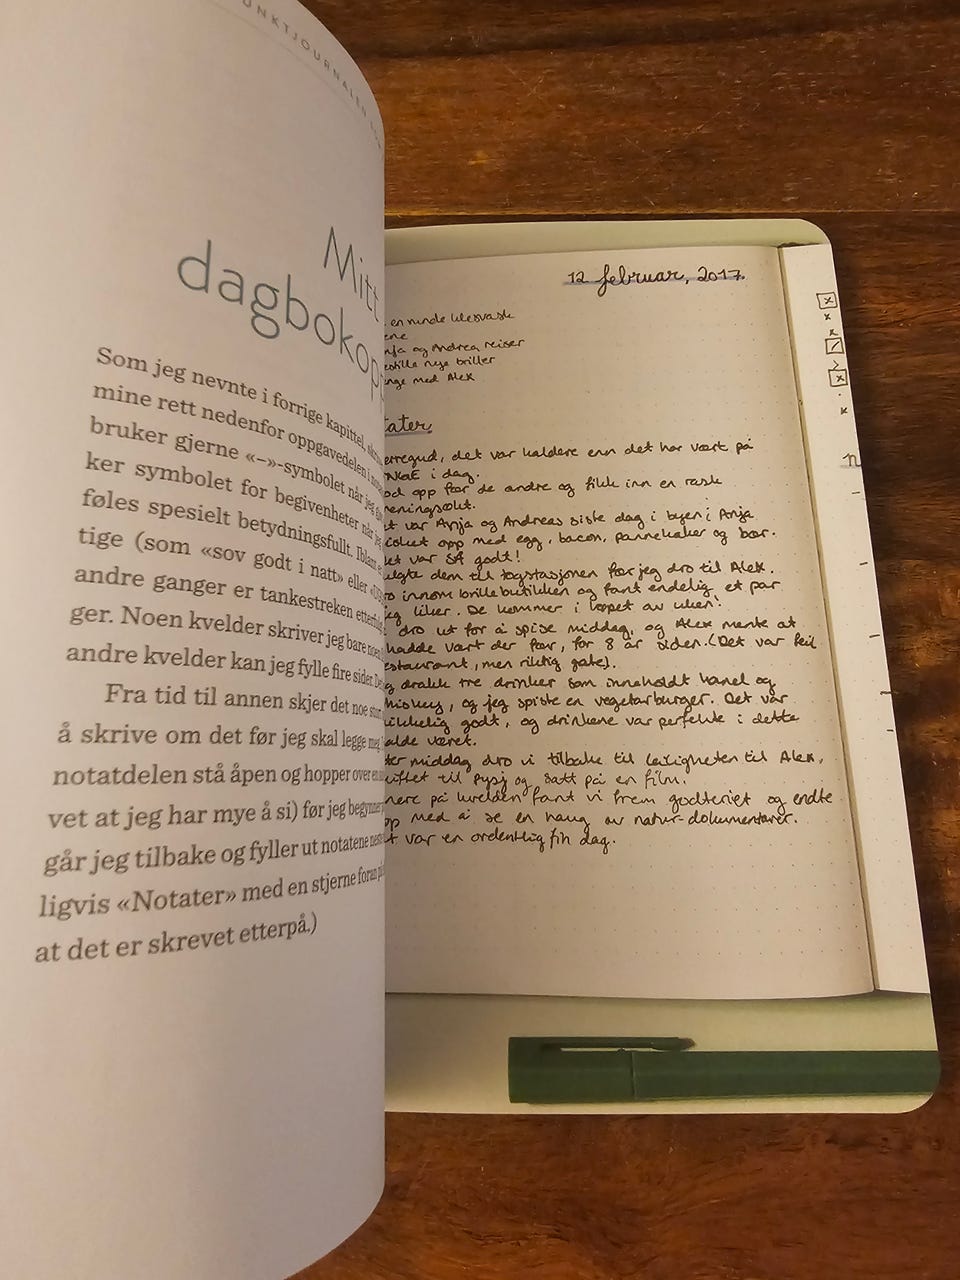 UNKTJOURNALEN
Mitt
dagbokopp
Som jeg nevnte i forrige kapittel,
mine rett nedenfor oppgavedelen i
bruker gjerne «–»-symbolet når jeg
ker symbolet for begivenheter når jeg
føles spesielt betydningsfullt. Iblant
tige (som «sov godt i natt» eller
andre ganger er tankestreken etterfu
ger. Noen kvelder skriver jeg bare noen
andre kvelder kan jeg fylle fire sider. De
Fra tid til annen skjer det noe
å skrive om det før jeg skal legge meg
notatdelen stå åpen og hopper over en
vet at jeg har mye å si) før jeg begynner
går jeg tilbake og fyller ut notatene neste
ligvis «Notater» med en stjerne foran
at det er skrevet etterpå.)
12 februar, 2017.
en runde klesvask
ene
nja og Andrea reiser
estille nye briller
enge med Alex
tater
erregud, det var kaldere enn det har vært på
i dag.
od opp før de andre og fikk inn en rask
reningsøkt.
t var Anja og Andreas siste dag i byen; Anja
okket opp med egg, bacon, pannekaker og bær.
et var SÅ godt!
ulgte dem til togstasjonen før jeg dro til Alex.
o innom brillebutikken og fant endelig et par
eg liker. De kommer i løpet av uken!
dro ut for å spise middag, og Alex mente at
hadde vært der før, for 8 år siden. (Det var feil
estaurant, men riktig gate).
g drakk tre drinker som inneholdt kanel og
hiskey, og jeg spiste en vegetarburger. Det var
ikkelig godt, og drinkene var perfekte i dette
alde været.
ter middag dro vi tilbake til leiligheten til Alex,
kiftet til pysj og satt på en film.
nere på kvelden fant vi frem godteriet og endte
pp med å se en haug av natur-dokumentarer.
t var en ordentlig fin dag.
n